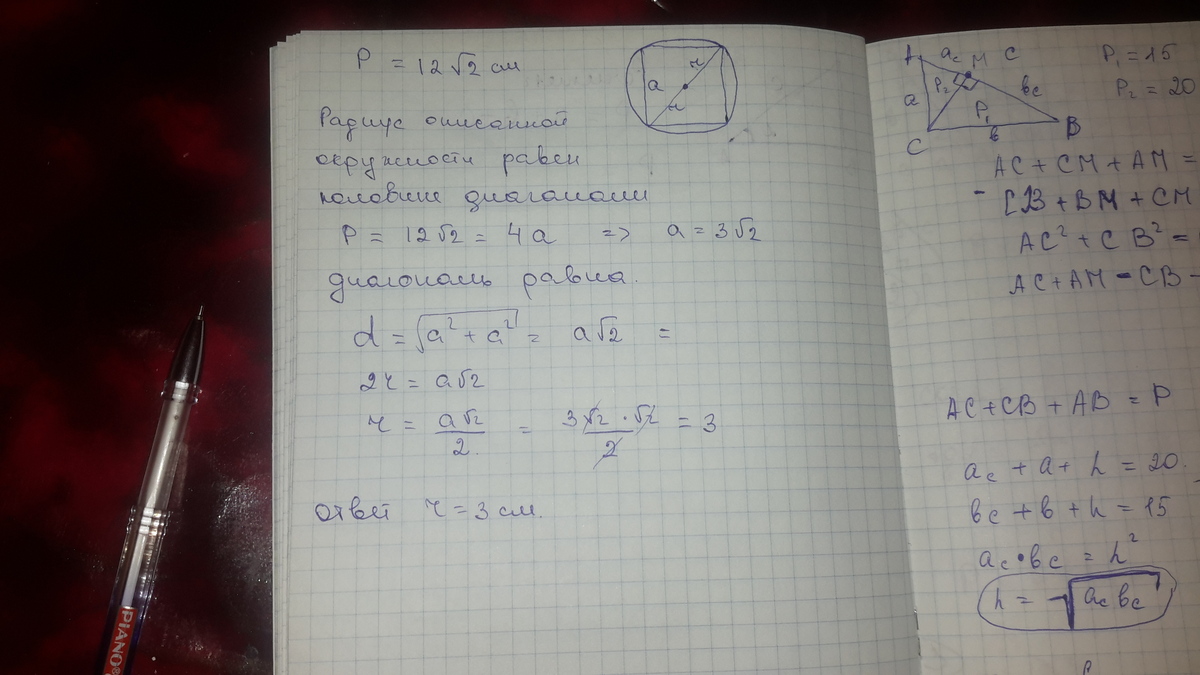 P = 12√2 см
a
r
r
Радиус описанной
окружности равен
половине диагонали
P = 12√2 = 4a => a = 3√2
диагональ равна.
d = √(a² + a²) = a√2 =
2r = a√2
r = a√2/2 = 3√2·√2/2 = 3
ответ r = 3 см.
A ac M C
P₁ = 15
P₂ = 20
a P₂ bc
P₁
C b B
AC + CM + AM =
- CB + BM + CM
AC² + CB² =
AC + AM - CB -
AC + CB + AB = P
ac + a + h = 20
bc + b + h = 15
ac·bc = h²
h = √ac bc
PIANO